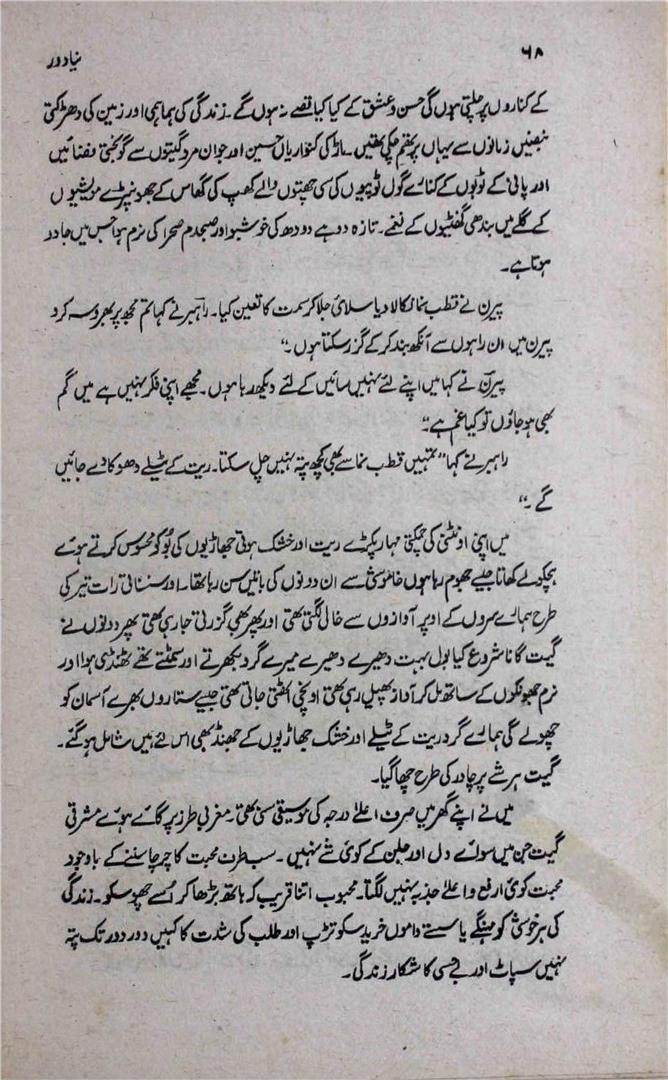 ۶۸
نیا دور
کے کناروں پر چلتی ہوں گی حسن و عشق کے کیا کیا قصے نہ ہوں گے۔ زندگی کی ہما ہمی اور زمین کی دھڑکتی
نبضیں زمانوں سے یہاں پر تھم چکی تھیں۔ ماڑ کی کنواریاں حسین اور جوان مرد گیتوں سے گونجتی فضائیں
اور پانی کے ٹوبوں کے کنارے گول ٹوپیوں کی سی چھتوں والے کھپ کی گھاس کے جھونپڑے مویشیوں
کے گلے میں بندھی گھنٹیوں کے نغمے۔ تازہ دوہے دودھ کی خوشبو اور صبحدم صحرا کی نرم ہوا جس میں جادو
ہوتا ہے۔
پیرن نے قطب نما نکالا دیا سلائی جلا کر سمت کا تعین کیا۔ راہبر نے کہا تم مجھ پر بھروسہ کرو
پیرن میں ان راہوں سے آنکھ بند کر کے گزر سکتا ہوں۔“
پیرن نے کہا میں اپنے لئے نہیں سائیں کے لئے دیکھ رہا ہوں۔ مجھے اپنی فکر نہیں ہے میں گم
بھی ہو جاؤں تو کیا غم ہے“
راہبر نے کہا ”تمہیں قطب نما سے بھی کچھ پتہ نہیں چل سکتا۔ ریت کے ٹیلے دھوکا دے جائیں
گے۔“
میں اپنی اونٹنی کی چمکتی مہار پکڑے ریت اور خشک ہوتی جھاڑیوں کی بُو کو محسوس کرتے ہوئے
ہچکولے کھاتا جیسے جھوم رہا ہوں خاموشی سے ان دونوں کی باتیں سن رہا تھا۔ اور سنسناتی رات تیر کی
طرح ہمارے سروں کے اوپر آوازوں سے خالی لگتی تھی اور پھر بھی گزرتی جا رہی تھی پھر دونوں نے
گیت گانا شروع کیا بول بہت دھیرے دھیرے میرے گرد بکھرتے اور سمٹتے تھے ٹھنڈی ہوا اور
نرم جھونکوں کے ساتھ مل کر آواز پھیل رہی تھی اونچی اٹھتی جاتی تھی جیسے ستاروں بھرے آسمان کو
چھولے گی ہمارے گرد ریت کے ٹیلے اور خشک جھاڑیوں کے جھنڈ بھی اس لئے میں شامل ہو گئے۔
گیت ہر شے پر چادر کی طرح چھا گیا۔
میں نے اپنے گھر میں صرف اعلیٰ درجہ کی موسیقی سنی تھی۔ مغربی طرز پر گائے ہوئے مشرقی
گیت جن میں سوائے دل اور جلن کے کوئی شے نہیں۔ سب طرف محبت کا چرچا سننے کے باوجود
محبت کوئی ارفع و اعلیٰ جذبہ نہیں لگتا۔ محبوب اتنا قریب کہ ہاتھ بڑھا کر اُسے چھو سکو۔ زندگی
کی ہر خوشی کو مہنگے یا سستے داموں خرید سکو تڑپ اور طلب کی شدت کا کہیں دور دور تک پتہ
نہیں سپاٹ اور بے حسی کا شکار زندگی۔